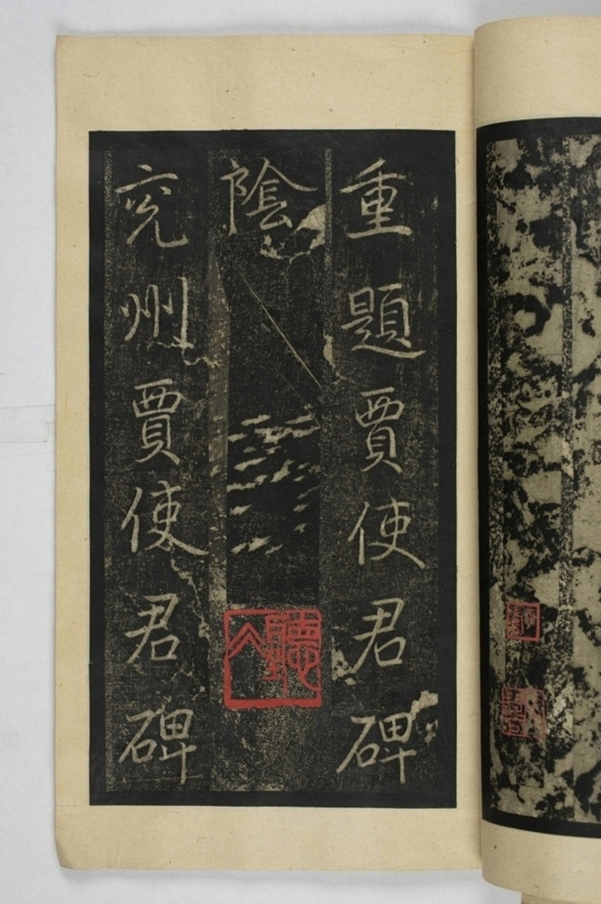 重題賈使君碑
陰
兖州賈使君碑